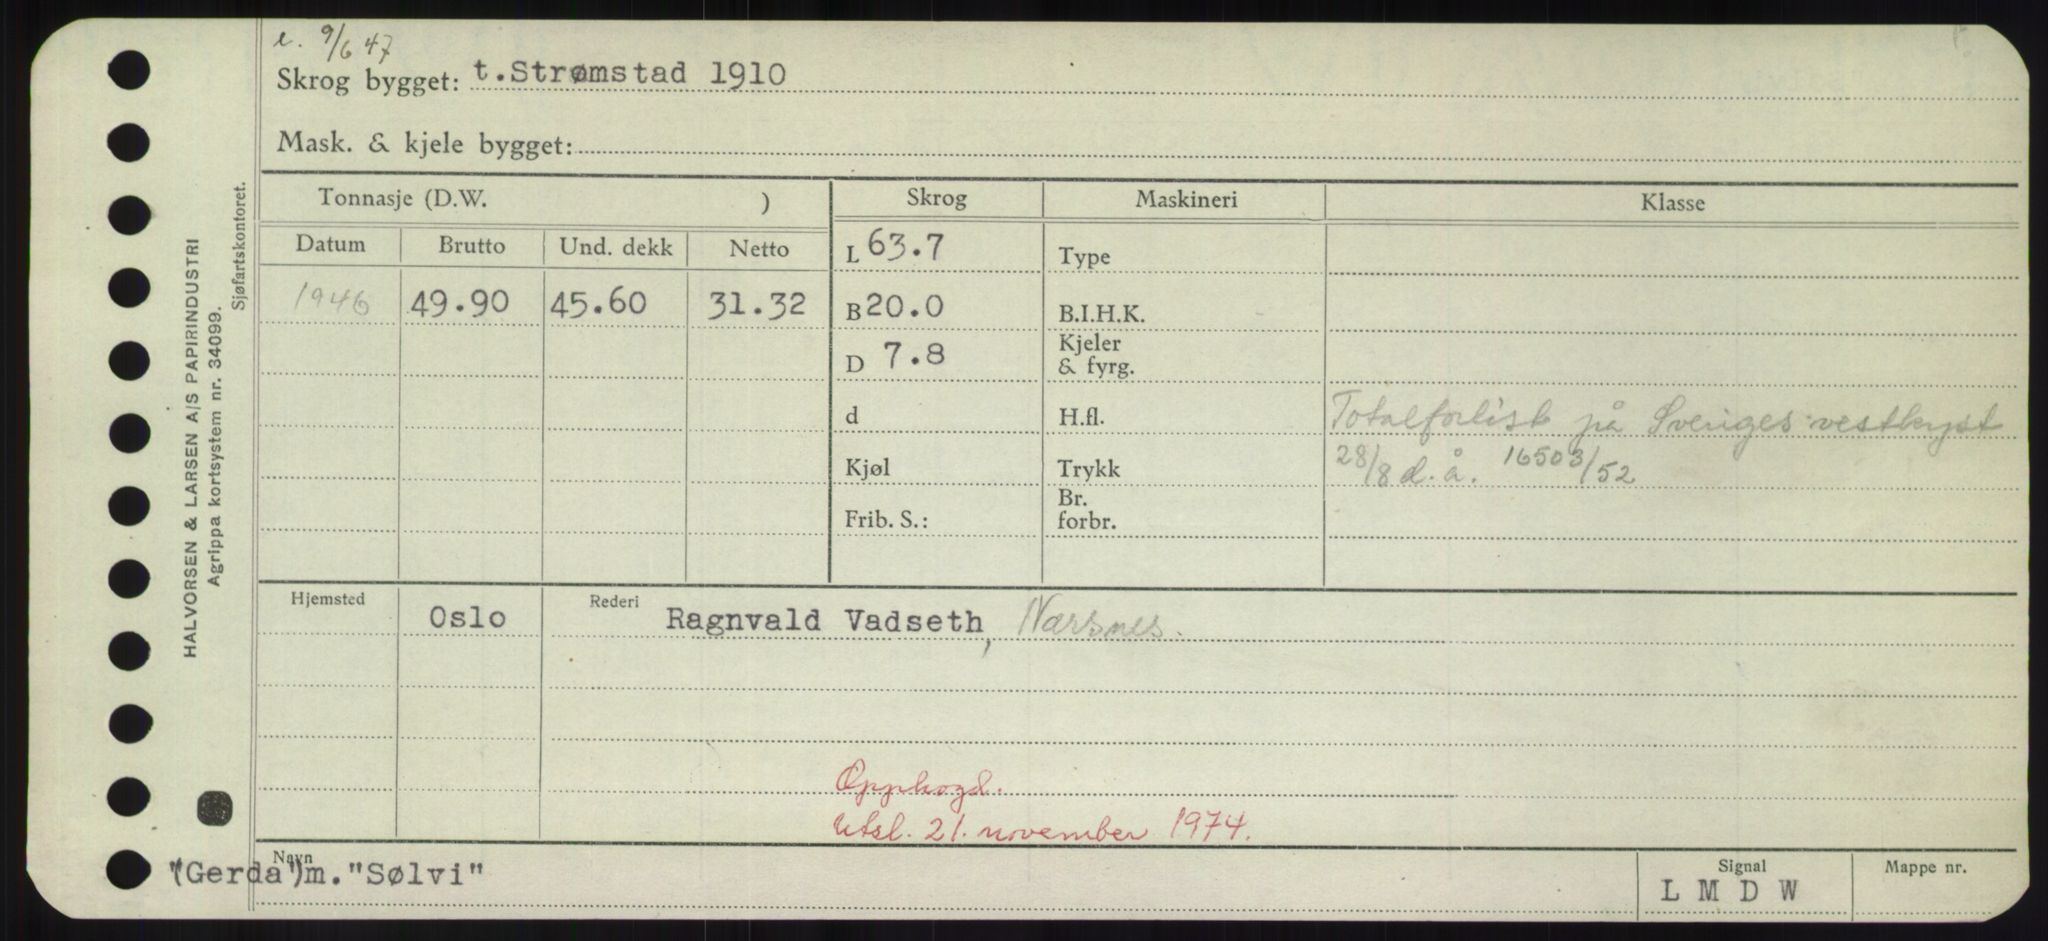 e. 9/6 47
Skrog bygget: t.Strømstad 1910
Mask. & kjele bygget:
Tonnasje (D.W. )
Skrog
Maskineri
Klasse
Datum
Brutto
Und. dekk
Netto
1946
49.90
45.60
31.32
L 63.7
B 20.0
D 7.8
d
Kjøl
Frib. S.:
Type
B.I.H.K.
Kjeler
& fyrg.
H.fl.
Trykk
Br.
forbr.
Totalforlist på Sveriges vestkyst
28/8 d.å. 16503/52
Hjemsted
Oslo
Rederi
Ragnvald Vadseth, Nærsnes.
Opphogd.
Utsl. 21. november 1974.
Navn
("Gerda")m."Sølvi"
Signal
L M D W
Mappe nr.
HALVORSEN & LARSEN A/S PAPIRINDUSTRI
Agrippa kortsystem nr. 34099.
Sjøfartskontoret.